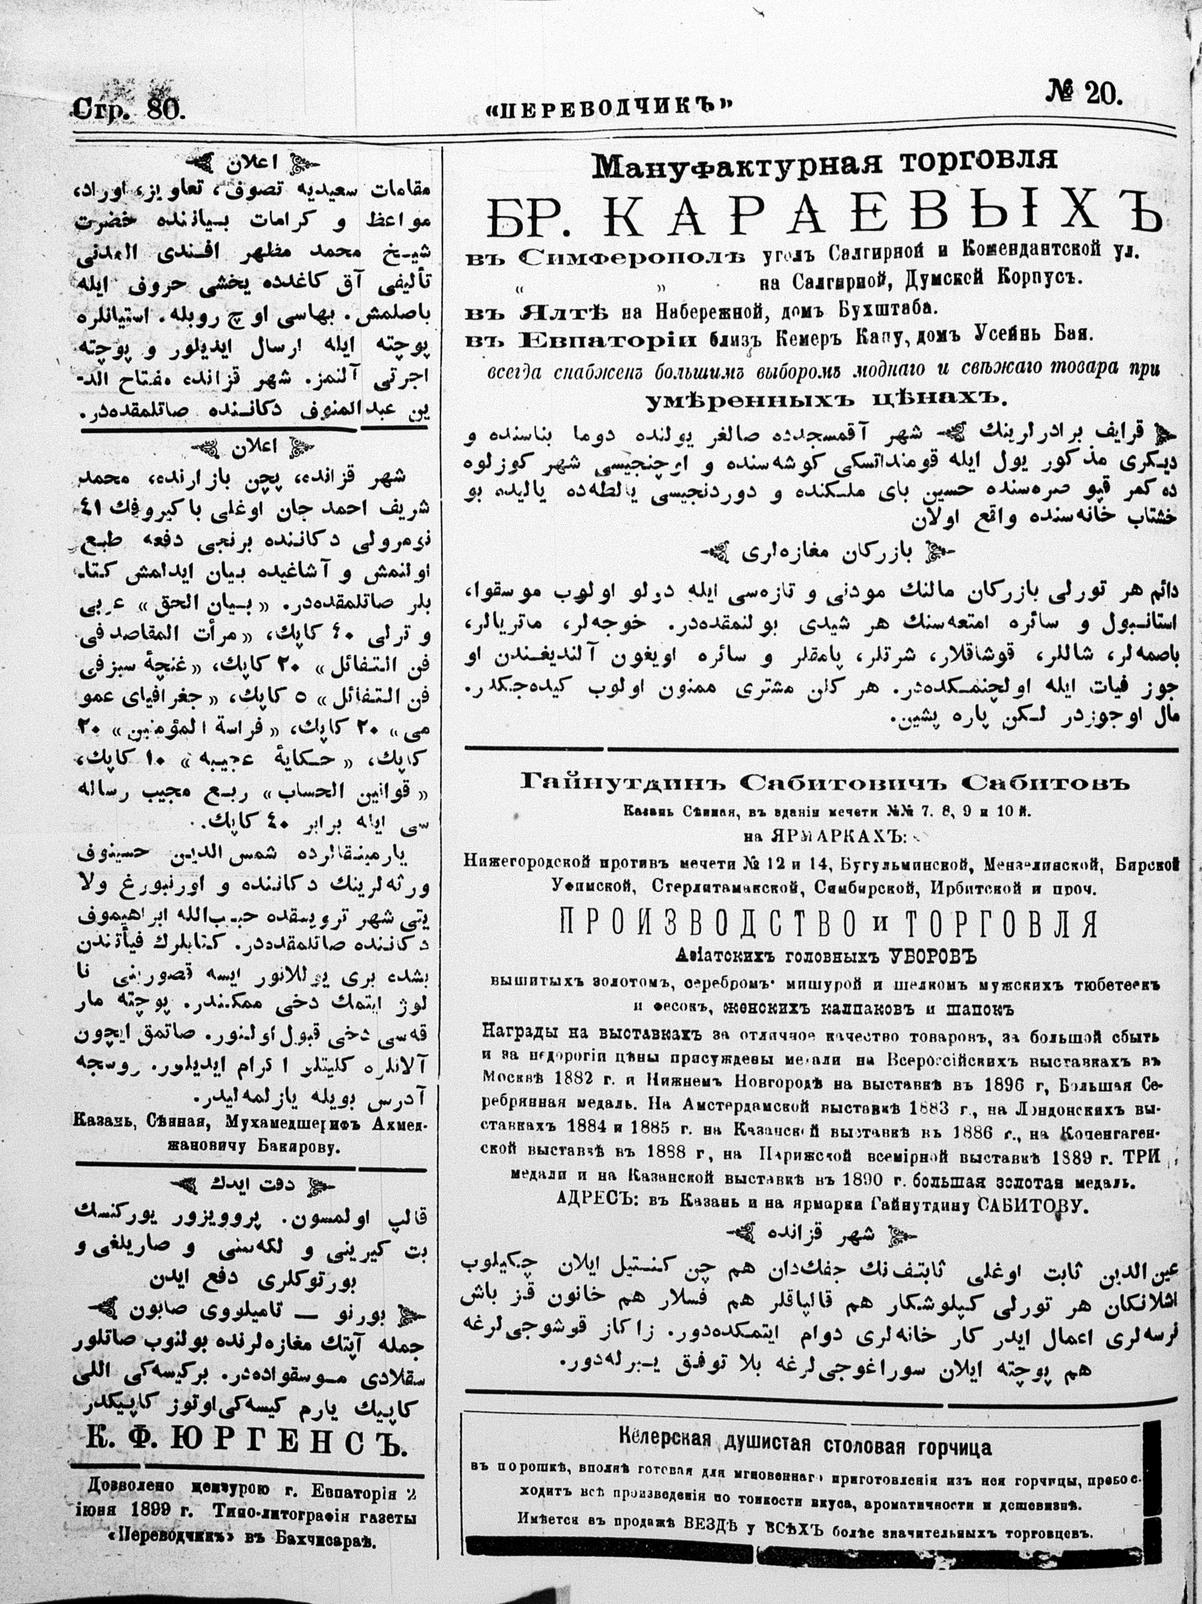 Стр. 80.
«ПЕРЕВОДЧИКЪ»
№ 20.
اعلان
مقامات سعيديه تصوف، تعاويز، اوراد،
مواعظ و كرامات بياننده حضرت
شيخ محمد مظهر افندى المدنى
تأليفى آق كاغدده يخشى حروف ايله
باصلمش. بهاسى اوچ روبله. استيانلره
پوچته ايله ارسال ايديلور و پوچته
اجرتى آلنمز. شهر قزانده مفتاح الد-
ين عبدالمنوف دكاننده صاتلمقده‌در.
اعلان
شهر قزانده، پچن بازارنده، محمد
شريف احمد جان اوغلى باكيروفك ٤١
نومرولى دكاننده برنجى دفعه طبع
اولنمش و آشاغيده بيان ايدلمش كتا-
بلر صاتلمقده‌در. «بيان الحق» عربى
و تركى ٤٠ كاپك، «مرأت المقاصد فى
فن التفائل» ٢٠ كاپك، «غنچهٔ سبز فى
فن التفائل» ٥ كاپك، «جغرافياى عمو
مى» ٢٠ كاپك، «فراسة المؤمنين» ٢٠
كاپك، «حكايهٔ عجيبه» ١٠ كاپك،
«قوانين الحساب» ربع مجيب رساله
سى ايله برابر ٤٠ كاپك.
يارمينقالرده شمس الدين حسينوف
ورثه‌لرينك دكاننده و اورنبورغ ولا
يتى شهر ترويسقده حبيب‌الله ابراهيموف
دكاننده صاتلمقده‌در. كتابلرك فيأتندن
بشده برى يوللانور ايسه قصورينى نا
لوژ ايتمك دخى ممكندر. پوچته مار
قه‌سى دخى قبول اولنور. صاتمق ايچون
آلانلره كليتلو اكرام ايديلور. روسجه
آدرس بويله يازلمه‌ليدر.
Казань, Сѣнная, Мухамедшерифъ Ахмед-
жановичу Бакирову.
دقت ايدك
قالپ اولمسون. پروويزور يوركنسك
بت كيرينى و لكه‌سنى و صاريلغى و
بورتوكلرى دفع ايدن
بورنو — تاميلووى صابون
جمله آپتك مغازه‌لرنده بولنوب صاتلور
سقلادى موسقواده‌در. بركيسه‌كى اللى
كاپيك يارم كيسه‌كى اوتوز كاپيكدر
К. Ф. ЮРГЕНСЪ.
Дозволено цензурою г. Евпаторія 2
іюня 1899 г. Типо-литографія газеты
«Переводчикъ» въ Бахчисараѣ.
Мануфактурная торговля
БР. КАРАЕВЫХЪ
въ Симферополѣ уголъ Салгирной и Комендантской ул.
„ „ на Салгирной, Думской Корпусъ.
въ Ялтѣ на Набережной, домъ Бухштаба.
въ Евпаторіи близъ Кемеръ Капу, домъ Усейнь Бая.
всегда снабженъ большимъ выборомъ моднаго и свѣжаго товара при
умѣренныхъ цѣнахъ.
قرايف برادرلرينك شهر آقمسجدده صالغر يولنده دوما بناسنده و
ديكرى مذكور يول ايله قومنداتسكى كوشه‌سنده و اوچنجيسى شهر كوزلوه
ده كمر قپو صره‌سنده حسين باى ملكنده و دوردنجيسى يالطه‌ده ياليده بو
خشتاب خانه‌سنده واقع اولان
بازركان مغازه‌لرى
دائم هر تورلى بازركان مالنك مودنى و تازه‌سى ايله دولو اولوب موسقوا،
استانبول و سائره امتعه‌سنك هر شيدى بولنمقده‌در. خوجه‌لر، ماتريالر،
باصمه‌لر، شاللر، قوشاقلار، شرتلر، پامقلر و سائره اويغون آلنديغندن او
جوز فيات ايله اولچنمكده‌در. هر كلن مشترى ممنون اولوب كيده‌جكدر.
مال اوجوزدر لكن پاره پشين.
Гайнутдинъ Сабитовичъ Сабитовъ
Казань Сѣнная, въ зданіи мечети №№ 7. 8, 9 и 10 й.
на ЯРМАРКАХЪ:
Нижегородской противъ мечети № 12 и 14, Бугульминской, Мензелинской, Бирской
Уфимской, Стерлитамакской, Симбирской, Ирбитской и проч.
ПРОИЗВОДСТВО и ТОРГОВЛЯ
Азіатскихъ головныхъ УБОРОВЪ
вышитыхъ золотомъ, серебромъ мишурой и шелкомъ мужскихъ тюбетеекъ
и фесокъ, женскихъ калпаковъ и шапокъ
Награды на выставкахъ за отличное качество товаровъ, за большой сбыть
и за недорогіи цѣны присуждены медали на Всероссійскихъ выставкахъ въ
Москвѣ 1882 г. и Нижнемъ Новгородѣ на выставкѣ въ 1896 г, Большая Се-
ребрянная медаль. На Амстердамской выставкѣ 1883 г., на Лондонскихъ вы-
ставкахъ 1884 и 1885 г. на Казанской выставкѣ въ 1886 г., на Копенгаген-
ской выставкѣ въ 1888 г, на Парижской всемірной выставкѣ 1889 г. ТРИ
медали и на Казанской выставкѣ въ 1890 г. большая золотая медаль.
АДРЕСЪ: въ Казань и на ярмарки Гайнутдину САБИТОВУ.
شهر قزانده
عين الدين ثابت اوغلى ثابتفنك جفكدان هم چن كنستيل ايلان چكيلوب
اشلانكان هر تورلى كپلوشكار هم قالپاقلر هم فسلار هم خاتون قز باش
نرسه‌لرى اعمال ايدر كار خانه‌لرى دوام ايتمكده‌دور. زاكاز قوشوجى‌لرغه
هم پوچته ايلان سوراغوجى‌لرغه بلا توفق يبرله‌دور.
Келерская душистая столовая горчица
въ порошкѣ, вполнѣ готовая для мгновеннаго приготовленія изъ нея горчицы, превос-
ходитъ всѣ произведенія по тонкости вкуса, ароматичности и дешевизнѣ.
Имѣется въ продажѣ ВЕЗДѢ у ВСѢХЪ болѣе значительныхъ торговцевъ.